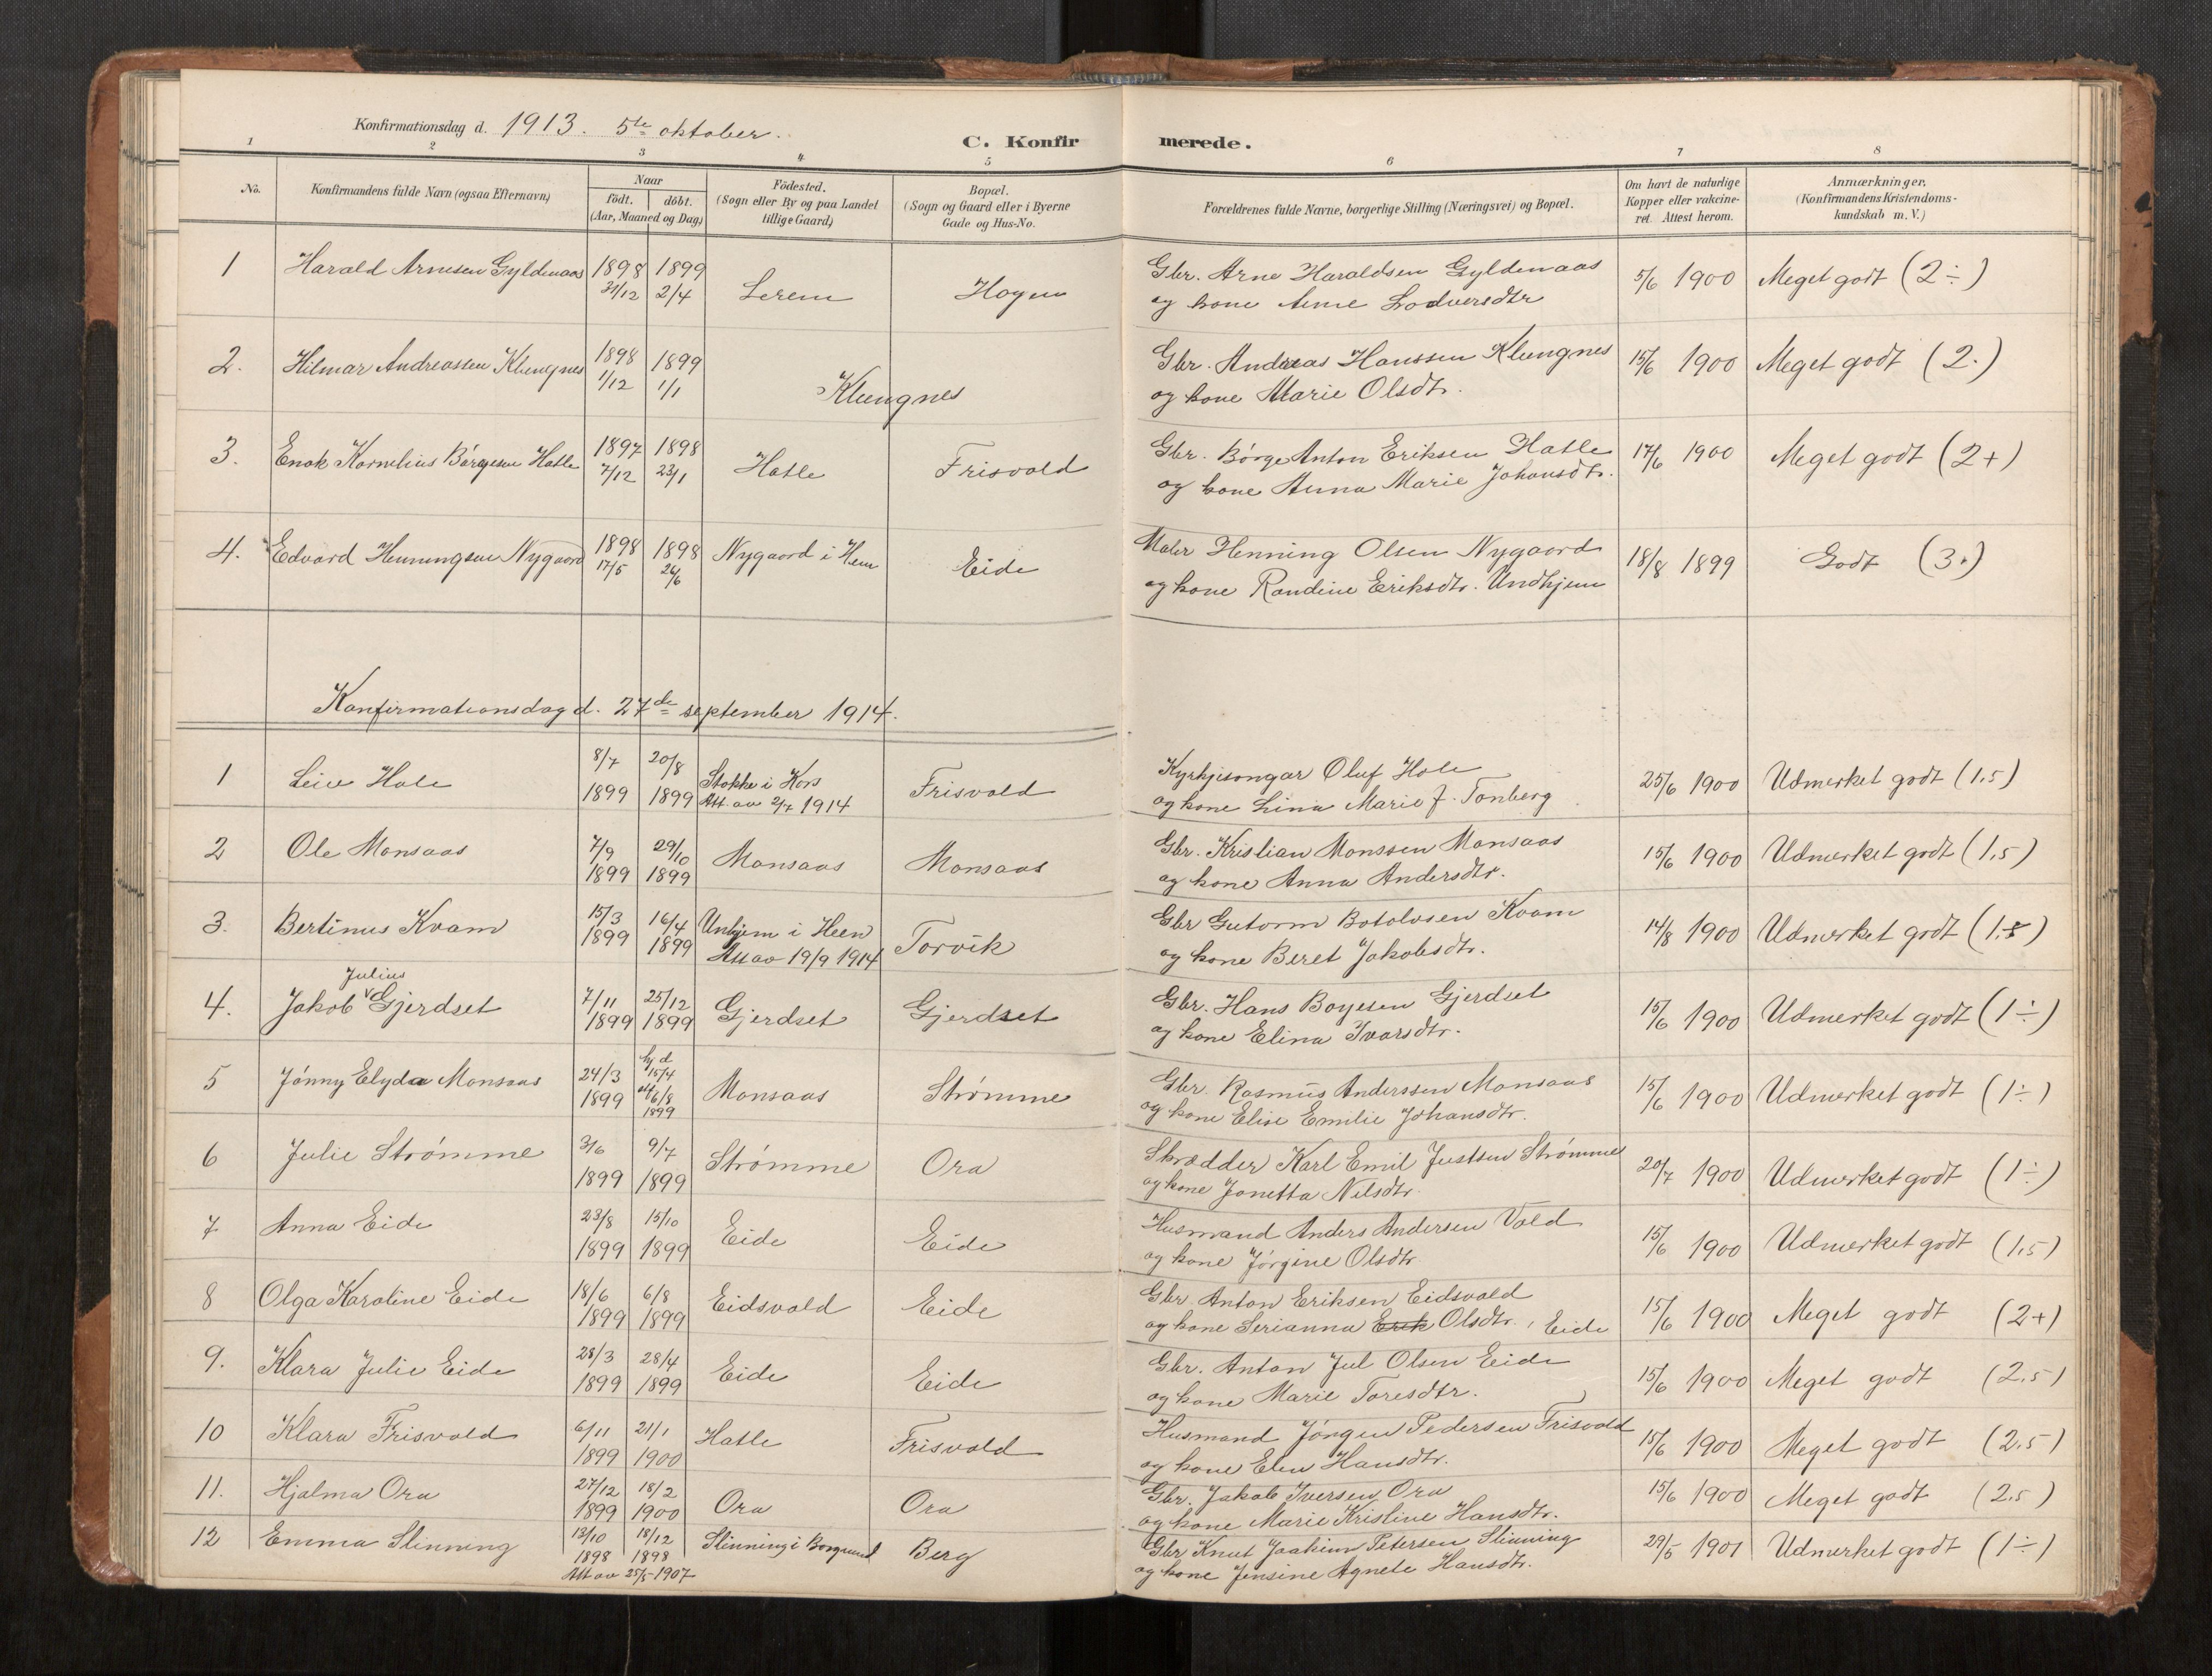 Konfirmationsdag d. 1913. 5te oktober.
C. Konfirmerede.
1 2 3 4 5 6 7 8
No.
Konfirmandens fulde Navn (ogsaa Efternavn)
Naar
födt. döbt.
(Aar, Maaned og Dag)
Födested.
(Sogn eller By og paa Landet
tillige Gaard)
Bopæl.
(Sogn og Gaard eller i Byerne
Gade og Hus-No.
Forældrenes fulde Navne, borgerlige Stilling (Næringsvei) og Bopæl.
Om havt de naturlige
Kopper eller vakcine-
ret. Attest herom.
Anmærkninger.
(Konfirmandens Kristendoms-
kundskab m. V.)
1 Harald Arnesen Gyldenaas 1898 31/12 1899 2/4 Lerem Hogen
Gbr. Arne Haraldsen Gyldenaas
og kone Anne Lodversdtr
5/6 1900 Meget godt (2÷)
2. Hilmar Andreassen Klungnes 1898 1/12 1899 1/1 Klungnes
Gbr. Andreas Hanssen Klungnes
og kone Marie Olsdtr.
15/6 1900 Meget godt (2.)
3. Enok Kornelius Børgesen Hatle 1897 7/12 1898 23/1 Hatle Frisvold
Gbr. Børge Anton Eriksen Hatle
og kone Anna Marie Johansdtr.
17/6 1900 Meget godt (2+)
4. Edvard Henningsen Nygaard 1898 17/5 1898 26/6 Nygaard i Hen Eide
Maler Henning Olsen Nygaard
og kone Randine Eriksdtr. Undhjem
18/8 1899 Godt (3.)
Konfirmationsdag d. 27de september 1914.
1 Leiv Hole 8/7 1899 20/8 1899 Stokke i Kors
Att. av 2/7 1914 Frisvold
Kyrkjesongar Oluf Hole
og kone Lina Marie J. Tonberg
25/6 1900 Udmerket godt (1,5)
2 Ole Monsaas 7/9 1899 29/10 1899 Monsaas Monsaas
Gbr. Kristian Monssen Monsaas
og kone Anna Andersdtr.
15/6 1900 Udmerket godt (1,5)
3. Bertinus Kvam 15/3 1899 16/4 1899 Unhjem i Heen
Att av 19/9 1914 Torvik
Gbr Gutorm Botolvsen Kvam
og kone Beret Jakobsdtr.
14/8 1900 Udmerket godt (1,5)
4. Jakob Julius Gjerdset 7/11 1899 25/12 1899 Gjerdset Gjerdset
Gbr. Hans Boyesen Gjerdset
og kone Elina Ivarsdtr.
15/6 1900 Udmerket godt (1÷)
5 Jónny Elyda Monsaas 24/3 1899 hj d 15/4 6/8 1899 Monsaas Strømme
Gbr. Rasmus Anderssen Monsaas
og kone Elise Emilie Johansdtr.
15/6 1900 Udmerket godt (1÷)
6 Julie Strømme 3/6 1899 9/7 1899 Strømme Ora
Skrædder Karl Emil Justsen Strømme
og kone Jonetta Nilsdtr.
20/7 1900 Udmerket godt (1÷)
7 Anna Eide 23/8 1899 15/10 1899 Eide Eide
Husmand Anders Andersen Vold
og kone Jørgine Olsdtr
15/6 1900 Udmerket godt (1,5)
8 Olga Karoline Eide 18/6 1899 6/8 1899 Eidsvold Eide
Gbr. Anton Eriksen Eidsvold
og kone Serianna Erik Olsdtr., Eide
15/6 1900 Meget godt (2+)
9. Klara Julie Eide 28/3 1899 28/4 1899 Eide Eide
Gbr. Anton Jul Olsen Eide
og kone Marie Toresdtr.
15/6 1900 Meget godt (2.5)
10 Klara Frisvold 6/11 1899 21/1 1900 Hatle Frisvold
Husmand Jørgen Pedersen Frisvold
og kone Elen Hansdtr.
15/6 1900 Meget godt (2.5)
11. Hjalma Ora 27/12 1899 18/2 1900 Ora Ora
Gbr. Jakob Iversen Ora
og kone Marie Kristine Hansdtr.
15/6 1900 Meget godt (2.5)
12 Emma Slinning 13/10 1898 18/12 1898 Slinning i Borgund Berg
Att av 25/5 1907
Gbr Knut Joakim Petersen Slinning
og kone Jensine Agnete Hansdtr.
29/5 1901 Udmerket godt (1÷)